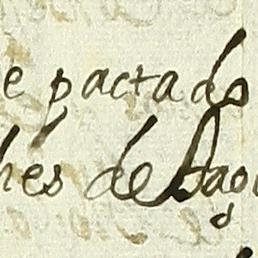 e pactado
hés de Pago